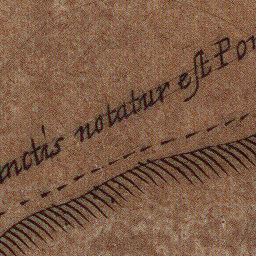 nctis notatur eſt Por